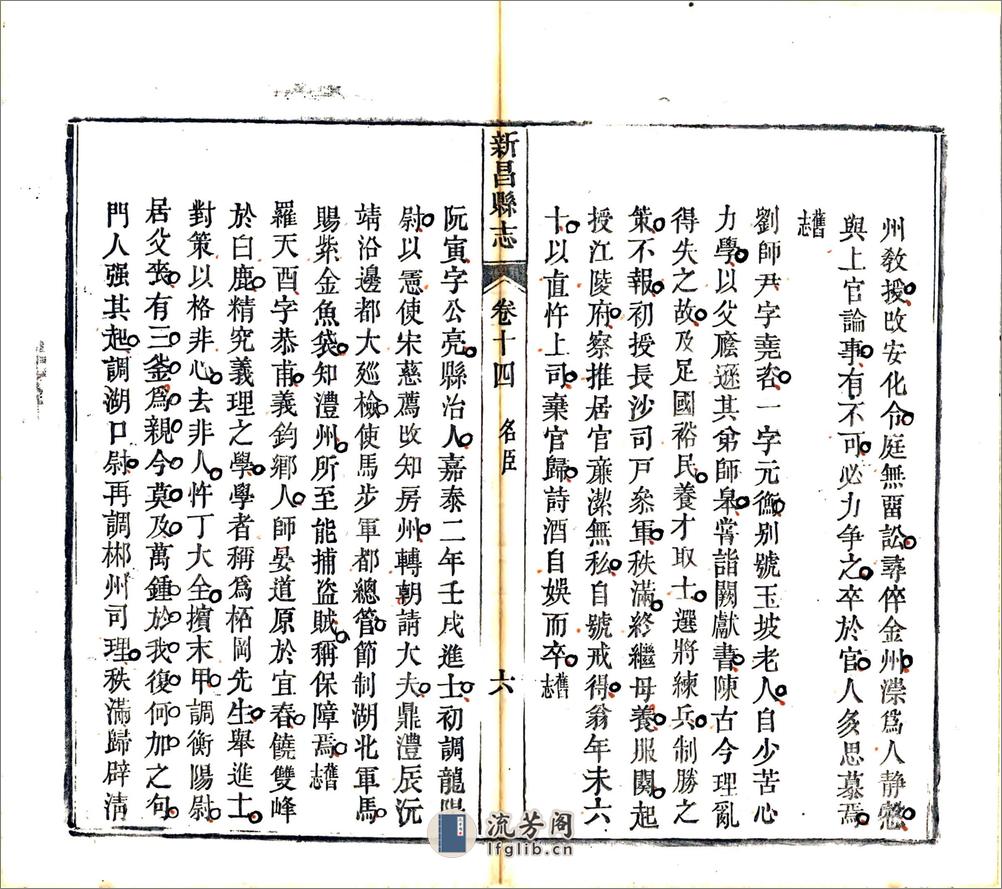 州教授改安化令庭無畱訟尋倅金州灤爲人静慤
與上官論事有不可必力争之卒於官人多思慕焉
舊志
劉師尹字堯咨一字元衡别號玉坡老人自少苦心
力學以父廕遜其弟師臯嘗詣闕獻書陳古今理亂
得失之故及足國裕民養才取士選將練兵制勝之
策不報初授長沙司戸叅軍秩滿終繼母養服闋起
授江陵府察推居官亷潔無私自號戒得翁年未六
十以直忤上司棄官歸詩酒自娱而卒舊志
新昌縣志 卷十四 名臣 六
阮寅字公亮縣治人嘉泰二年壬戌進士初調龍陽
尉以憲使宋慈薦改知房州轉朝請大夫鼎澧辰沅
靖沿邊都大廵檢使馬步軍都總管節制湖北軍馬
賜紫金魚袋知澧州所至能捕盗賊稱保障焉舊志
羅天酉字恭甫義鈞鄉人師晏道原於宜春饒雙峰
於白鹿精究義理之學學者稱爲栢岡先生舉進士
對策以格非心去非人忤丁大全擯末甲調衡陽尉
居父喪有三釜爲親今莫及萬鍾於我復何加之句
門人强其起調湖口尉再調郴州司理秩滿歸辟清
流芳阁
lfglib.cn